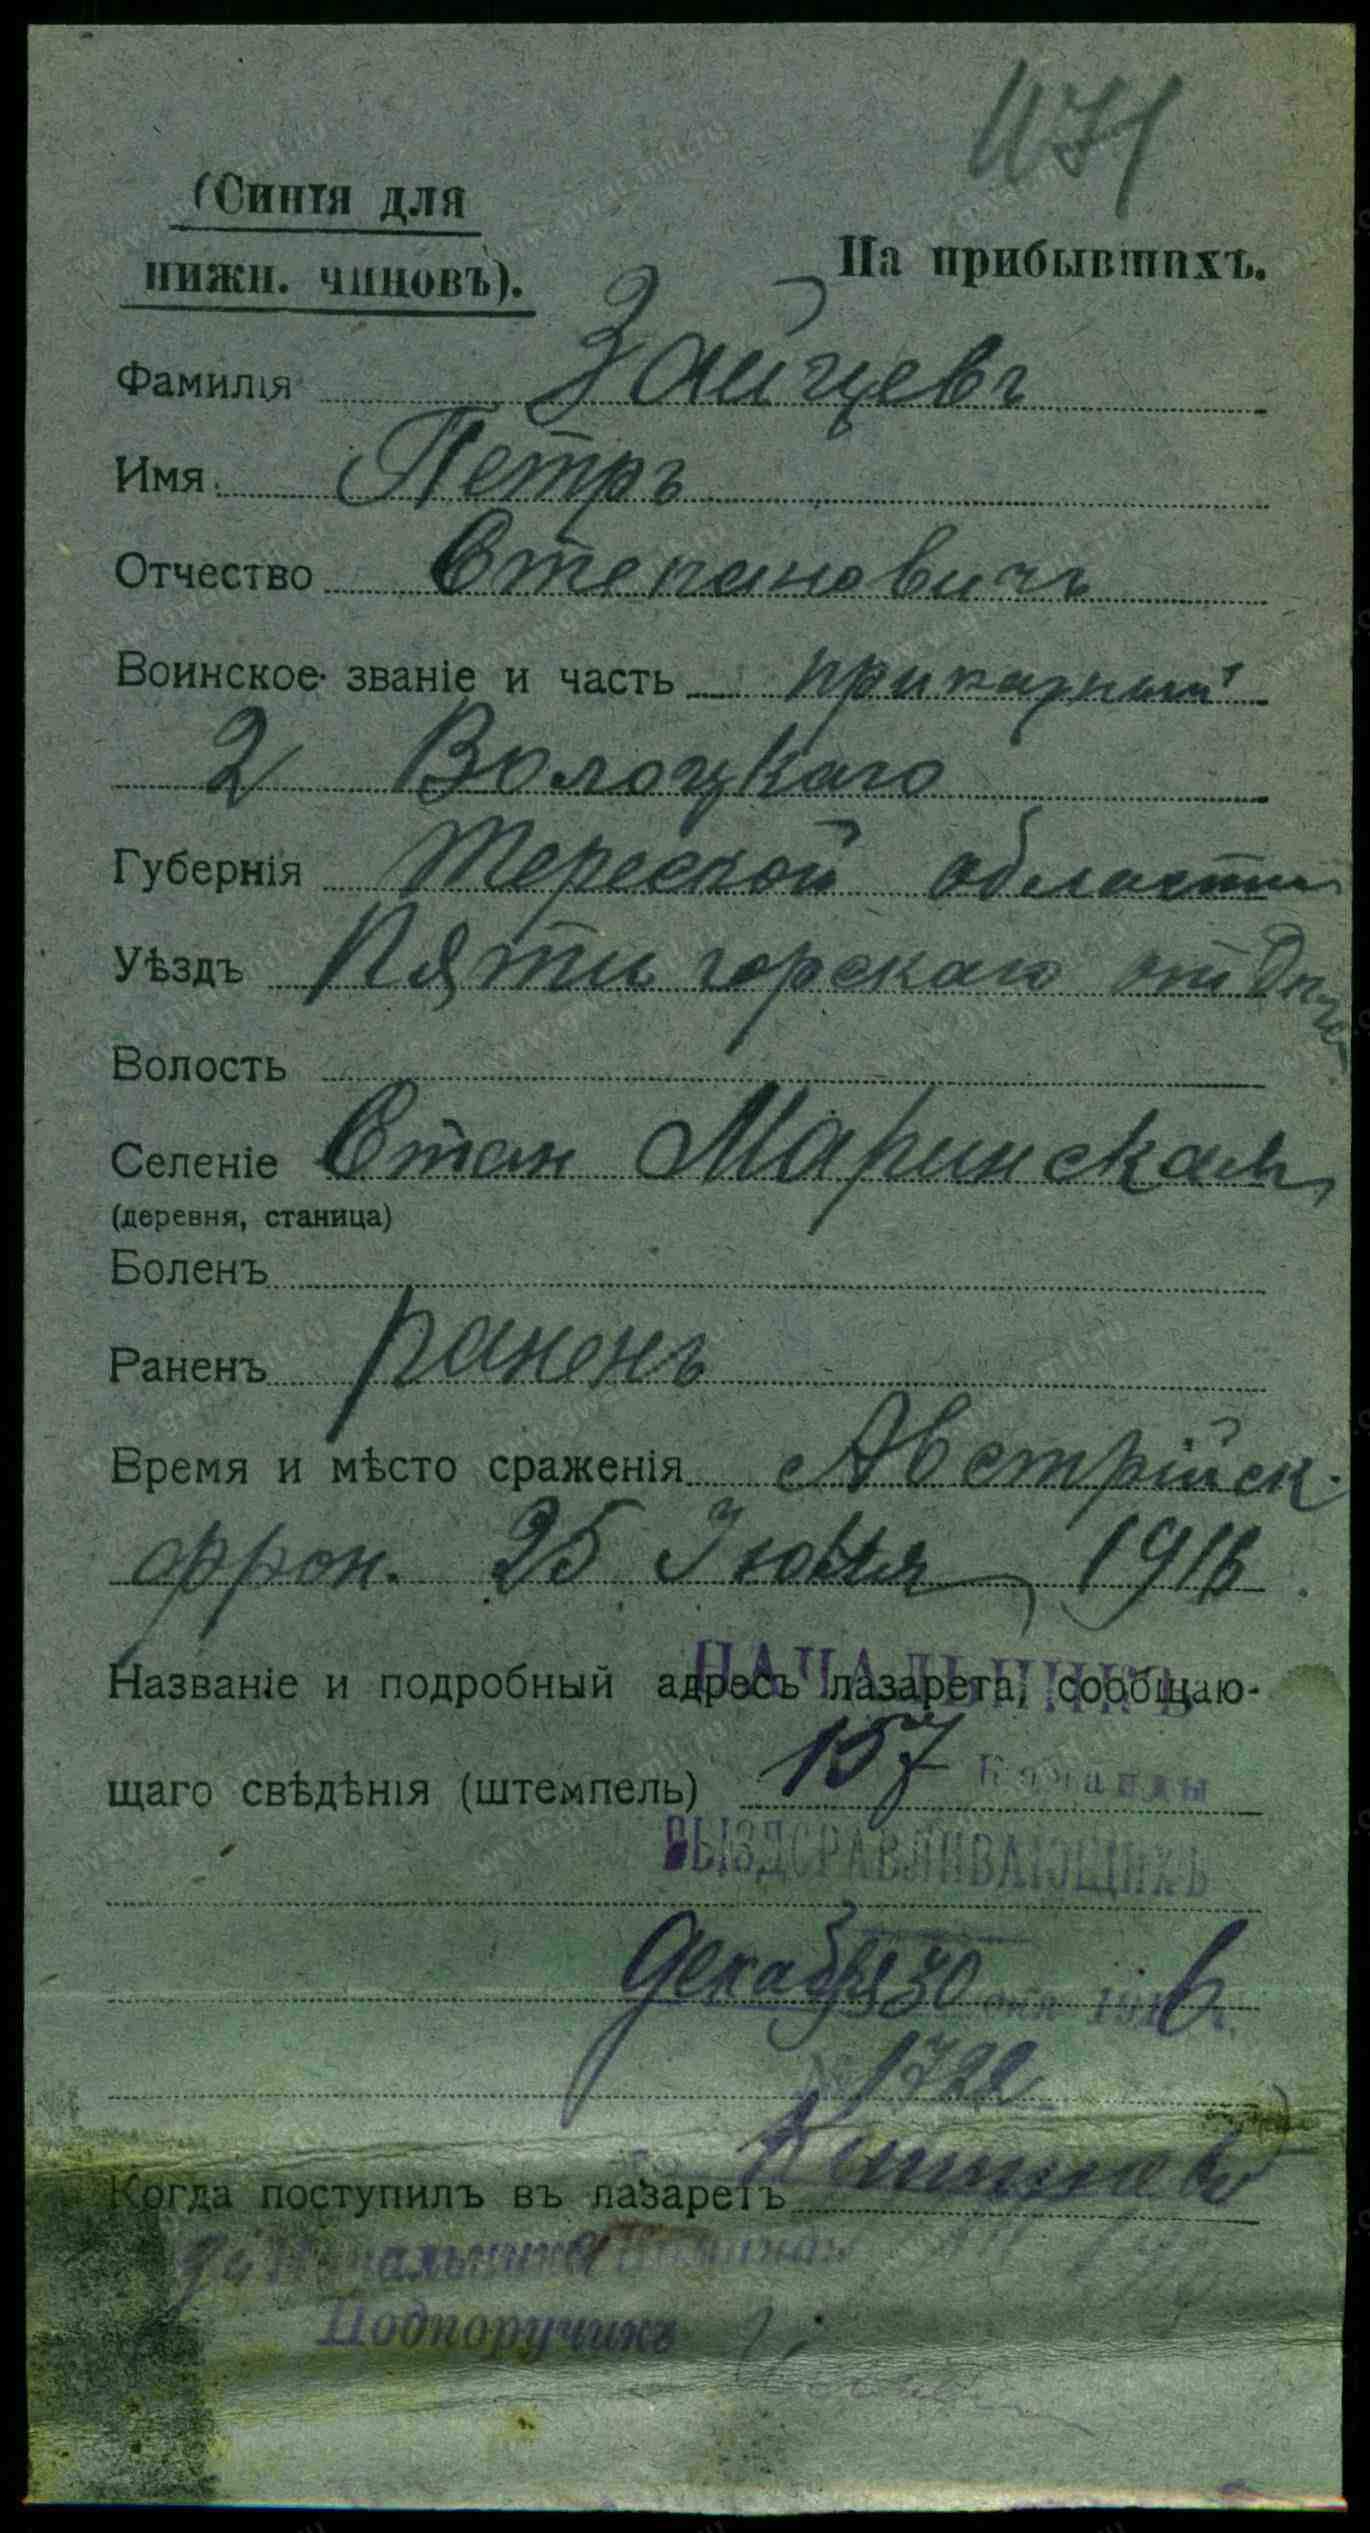 471
(Синія для
нижн. чиновъ).
На прибывшихъ.
Фамилія Зайцевъ
Имя Петръ
Отчество Степановичъ
Воинское званіе и часть приказный
2 Волоцкаго
Губернія Терской области
Уѣздъ Пятигорскаго отдѣла
Волость
Селеніе Стан Маринская
(деревня, станица)
Боленъ
Раненъ раненъ
Время и мѣсто сраженія Австрійск.
фрон. 25 Июня 1916
Названіе и подробный адресъ лазарета, сообщаю-
НАЧАЛЬНИКЪ
щаго свѣдѣнія (штемпель) 157 Команды
ВЫЗДОРАВЛИВАЮЩИХЪ
Декабря 30 дня 1916 г.
№ 1722
Кишинев
Когда поступилъ въ лазаретъ
Начальника Команды
Подпоручикъ